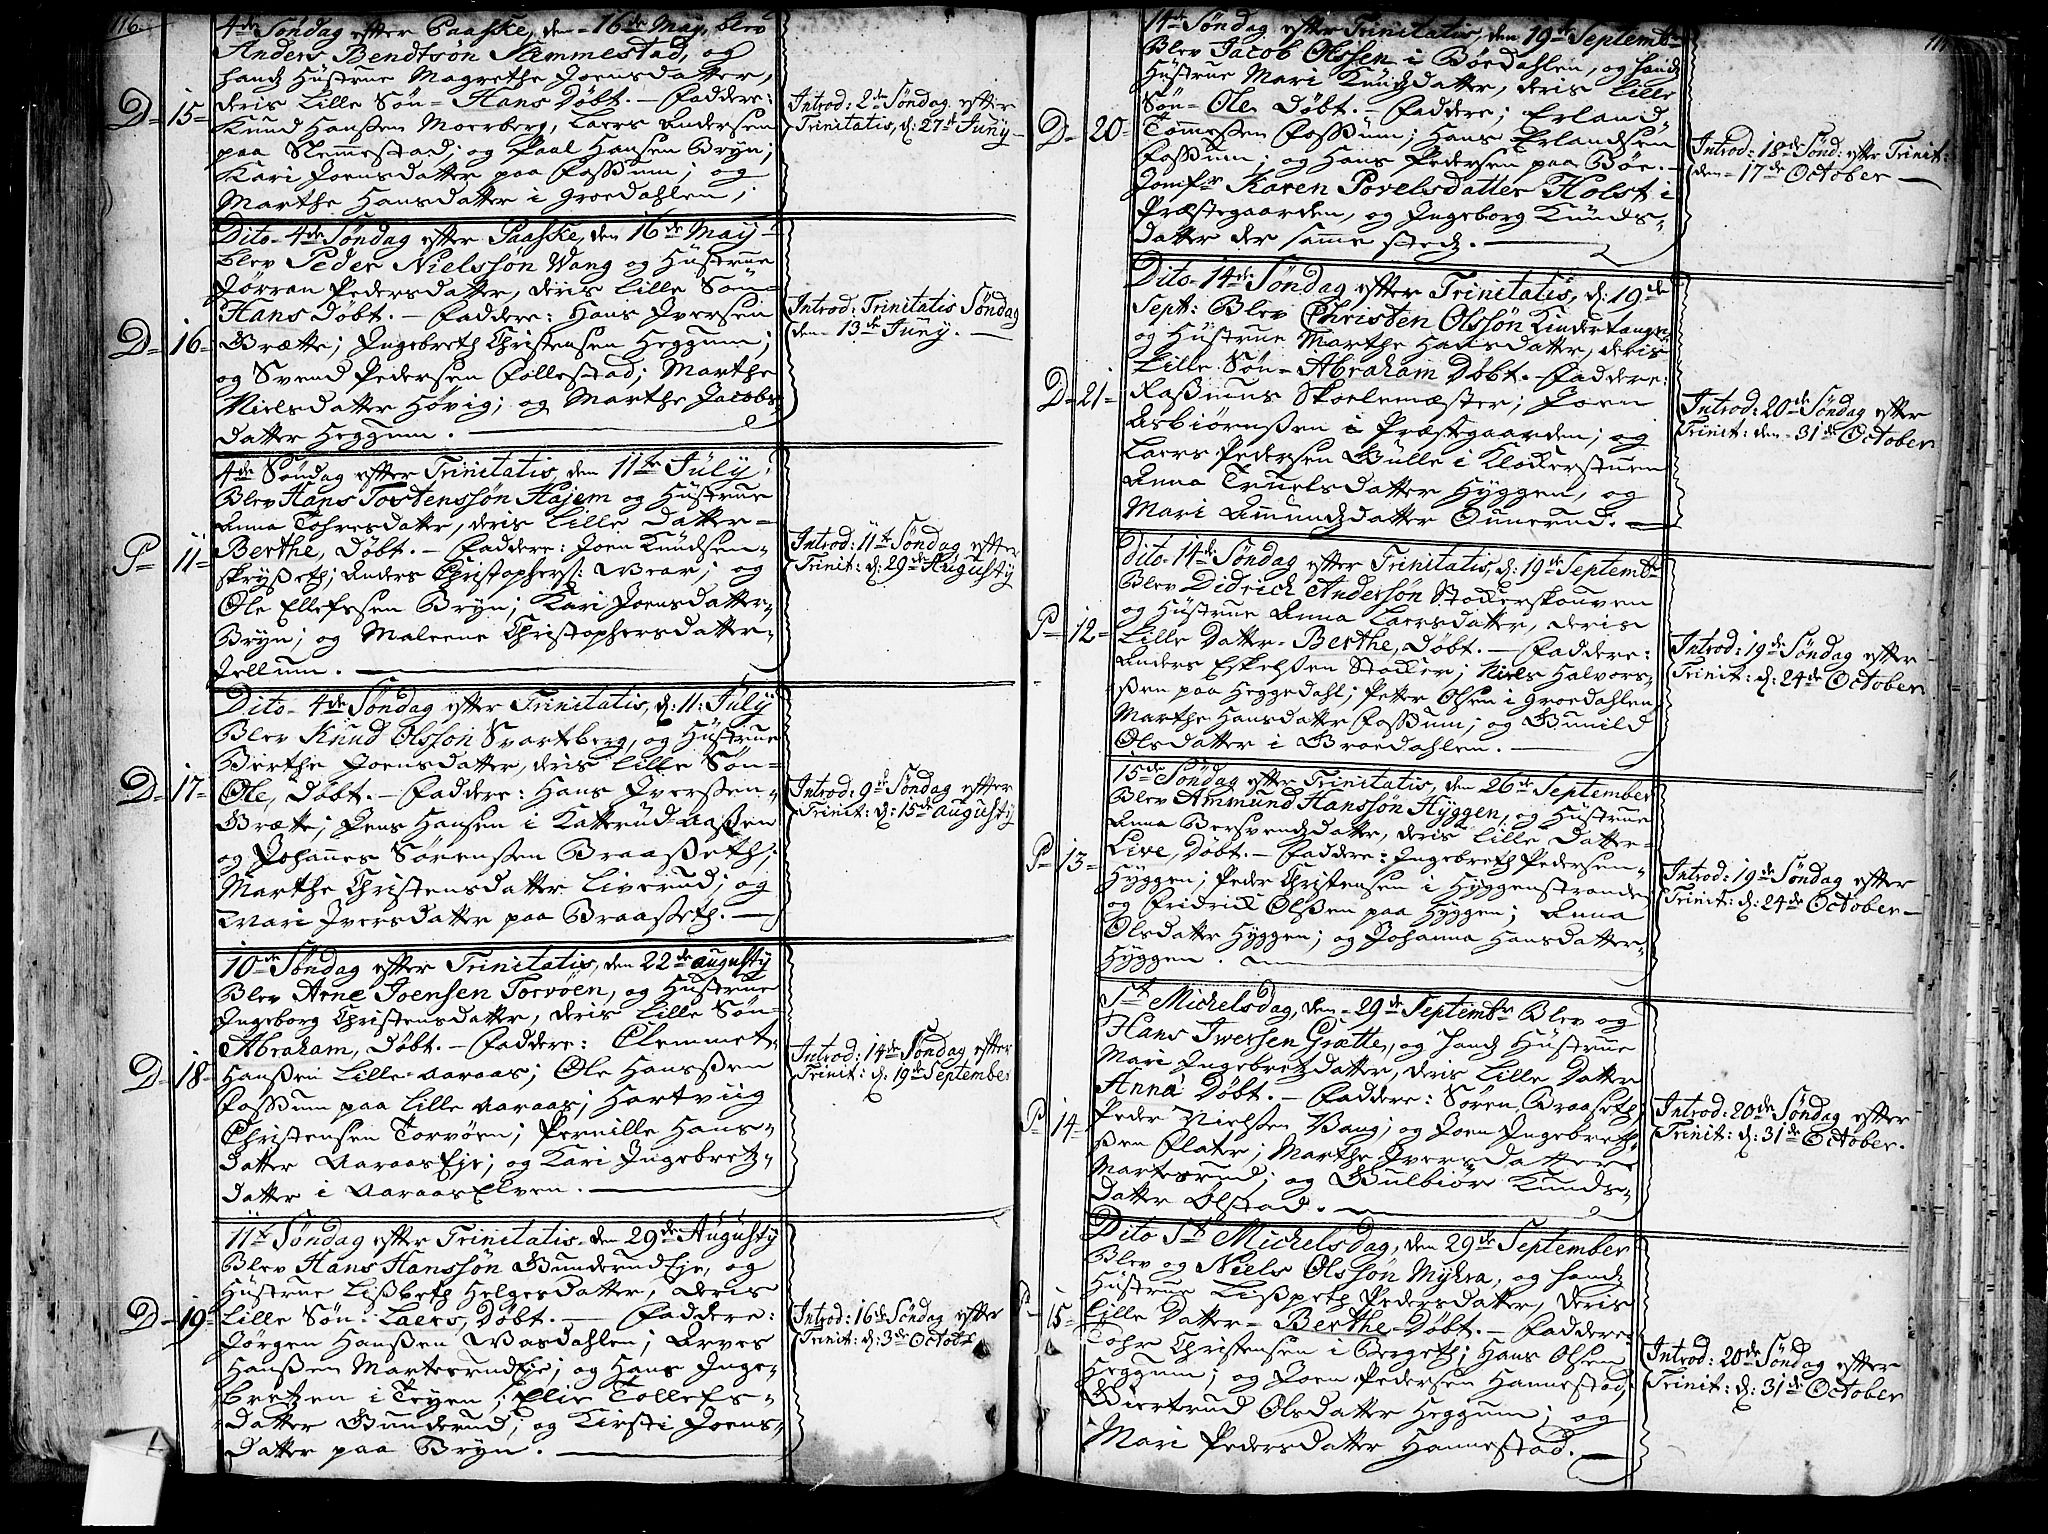 116.
4de Søndag efter Paaske, den 16de Maj, blev
Anders Bendtsøn Næmmestad, og
hands Hustrue Magrethe Joensdatter,
deris Lille Søn = Hans Døbt. — Faddere:
D = 15 = Knud Hanßen Moerberg, Laers Andersen
paa Nemmestad; og Paal Hansen Bryn;
Kari Joensdatter paa Foßum; og
Marthe Hansdatter i Groedahlen;
Introd: 2de Søndag efter
Trinitatis, d: 27de Juny
Dito 4de Søndag efter Paaske, den 16de Maj
blev Peder Nielssøn Wang og Hustrue
Jørran Pedersdatter, deris Lille Søn =
Hans Døbt. — Faddere: Hans Iversen
D = 16 = Brætte; Ingebreth Christensen Heggum;
og Svend Pedersen Follestad; Marthe
Nielsdatter Høvig; og Marthe Jacobs
datter Heggum.
Introd: Trinitatis Søndag
den 13de Juny.
4de Søndag efter Trinitatis, den 11te July
Blev Hans Torstenssøn Højem og Hustrue
Anna Tohresdatter, deris Lille Datter =
P = 11 = Berthe, Døbt. — Faddere: Joen Knudsen
skryßeth; Anders Christophers: Wear; og
Ole Ellefssen Bryn; Kari Joensdatter
Bryn; og Maleene Christophersdatter
Jellum.
Introd: 11te Søndag efter
Trinit: d: 29de Augusty
Dito 4de Søndag efter Trinitatis, d: 11: July
Blev Knud Olsson Svarteberg, og Hustrue
Birthe Joensdatter, deris Lille Søn =
D = 17 = Ole, Døbt. — Faddere: Hans Iverßen
Brætte; Jens Hansen i Katterud-Aaßen
og Johannes Sørenßen Braaßeth;
Marthe Christensdatter Liverud; og
Mari Iversdatter paa Braaßeth.
Introd: 9de Søndag efter
Trinit: d: 15de Augusty
10de Søndag efter Trinitatis, den 22de Augusty
Blev Arne Joensen Torvøen, og Hustrue
Ingeborg Christensdatter, deris Lille Søn
Abraham, Døbt. — Faddere: Clemmet
D = 18 = Hanßen Lille-Aaraas; Ole Hanßen
Foßum paa Lille Aaraas; Hartviig
Christensen Torvøen; Pernille Hans-
datter AaraasEje; og Kari Ingebretz-
datter i AaraasElven.
Introd: 14de Søndag efter
Trinit: d: 19de September
11te Søndag efter Trinitatis den 29de Augusty
Blev Hans Hanssøn GunderudEje, og
Hustrue Lißbeth Helgesdatter, deris
D = 19 = Lille Søn = Laers, Døbt. — Faddere:
Jørgen Hanßen Wasdahlen; Arves
Hanßen MartesrudEje; og Hans Inge-
bretzen i Teyen; Elie Tollefs-
datter Gunderud; og Kirsti Joens-
datter paa Bryn.
Introd: 16de Søndag efter
Trinit: d: 3de Octobr
14de Søndag efter Trinitatis, den 19de Septembr
Blev Jacob Olssen i Bøedahlen, og hands
Hustrue Mari Knudsdatter, deris Lille
Søn = Ole Døbt. — Faddere; Erland
D = 20 = Tommeßen Foßum; Hans Erlandsen
Foßum; og Hans Pedersen paa Bøe.
Jomfr Karen Povelsdatter Holst i
Præstegaarden, og Ingeborg Knuds-
datter der samme steds.
Introd: 18de Sønd: efter Trinit:
den 17de October
Dito 14de Søndag efter Trinitatis, d: 19de
Sept: Blev Christen Olssøn Kindertangen
og Hustrue Marthe Hansdatter, deris
Lille Søn = Abraham Døbt. — Faddere:
D = 21 = Raßmus Skoelemæster; Joen
Asbiørnßen i Præstegaarden; og
Laers Pedersen Bulle i Klockerstuen
Anna Truelsdatter Hyggen, og
Mari Amundsdatter Ounerud.
Introd: 20de Søndag efter
Trinit: den 31de October
Dito 14de Søndag efter Trinitatis, d: 19de Septembr
Blev Didrich Anderssøn Stockerskouven
og Hustrue Anna Laersdatter, deris
P = 12 = Lille Datter = Berthe, Døbt. — Faddere:
Anders Eskelßen Stocker; Niels Halvors-
ßen paa Heggedahl; Petter Olsen i Groedahlen;
Marthe Hansdatter Foßum; og Gunild
Olsdatter i Broedahlen.
Introd: 19de Søndag efter
Trinit: d: 24de October
15de Søndag efter Trinitatis, den 26de September
Blev Ammund Hanssøn Hyggen, og Hustrue
Anna Bersvendsdatter, deris Lille Datter
P = 13 = Live, Døbt. — Faddere: Ingebreth Pedersen
Hyggen; Peder Christensen i Hyggenstranden
og Fridrick Olßen paa Hyggen; Anna
Olsdatter Hyggen; og Johanna Hansdatter
Hyggen.
Introd: 19de Søndag efter
Trinit: d: 24de October
St Michelsdag, den 29de Septembr Blev og
Hans Iverßen Grætte, og hands Hustrue
Mari Ingebretzdatter, deris Lille Datter
Anna Døbt. — Faddere: Søren Braaseth;
P = 14 = Peder Nielßen Wang; og Joen Ingebreth-
ßen Plater; Marthe Iversdatter
Martesrud; og Gulbiør Knuds-
datter Ølstad.
Introd: 20de Søndag efter
Trinit: d: 31de October.
Dito St Michelsdag, den 29de September
Blev og Niels Olssøn Myhra, og hands
Hustrue Lißpeth Pedersdatter, deris
P 15 = Lille Datter = Berthe Døbt. — Faddere:
Tohr Christensen i Bergeth; Hans Olsen
Heggum; og Joen Pedersen Hannestad;
Giertrud Olsdatter Heggum; og
Mari Pedersdatter Hannestad.
Introd: 20de Søndag efter
Trinit: d: 31de October